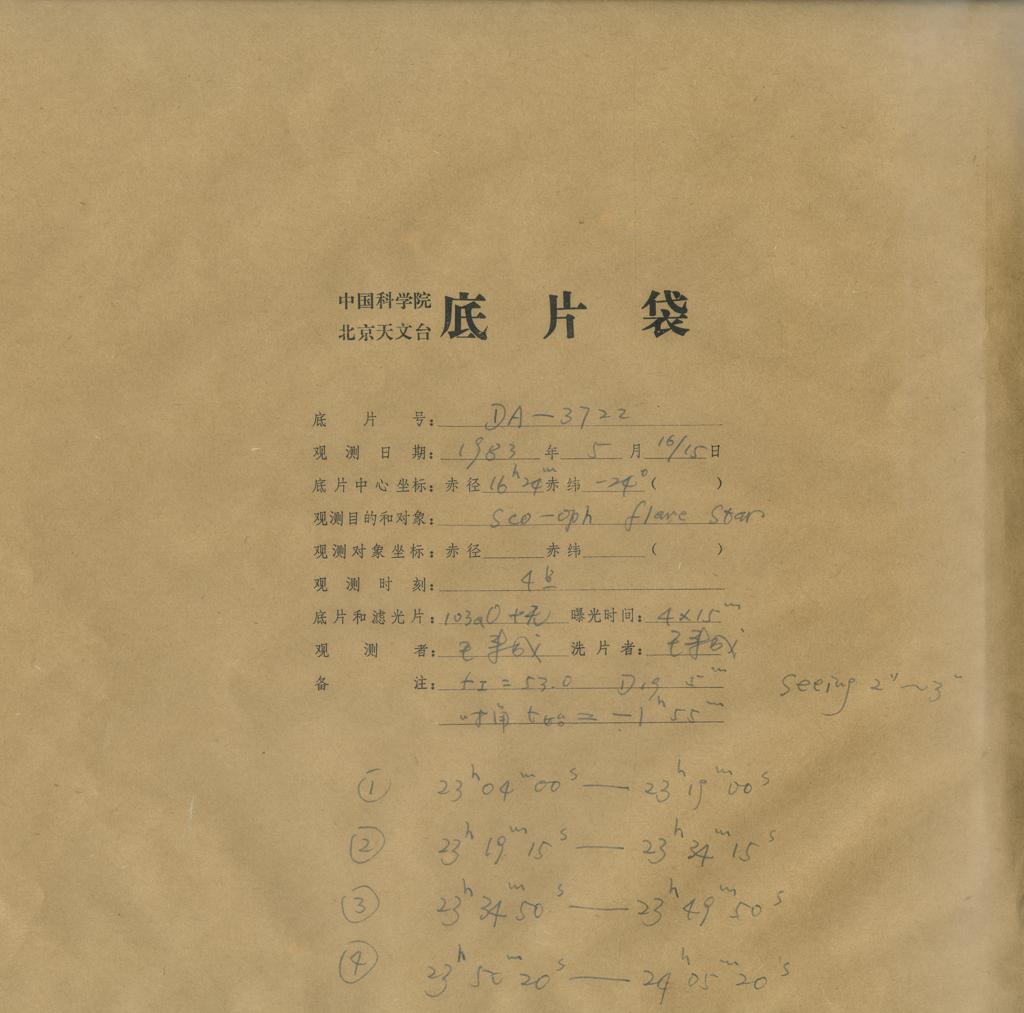 中国科学院
北京天文台 底片袋
底片号: DA-3722
观测日期: 1983年5月16/15日
底片中心坐标: 赤径16ʰ24ᵐ赤纬-24°( )
观测目的和对象: Sco-Oph flare star
观测对象坐标: 赤径 赤纬 ( )
观测时刻: 4
底片和滤光片: 103aO+无 曝光时间: 4×15ᵐ
观测者: 洗片者:
备注: = 53.0 D19 5ᵐ Seeing 2"~3"
时角 t始 = -1ʰ55ᵐ
① 23ʰ04ᵐ00ˢ — 23ʰ19ᵐ00ˢ
② 23ʰ19ᵐ15ˢ — 23ʰ34ᵐ15ˢ
③ 23ʰ34ᵐ50ˢ — 23ʰ49ᵐ50ˢ
④ 23ʰ50ᵐ20ˢ — 24ʰ05ᵐ20ˢ